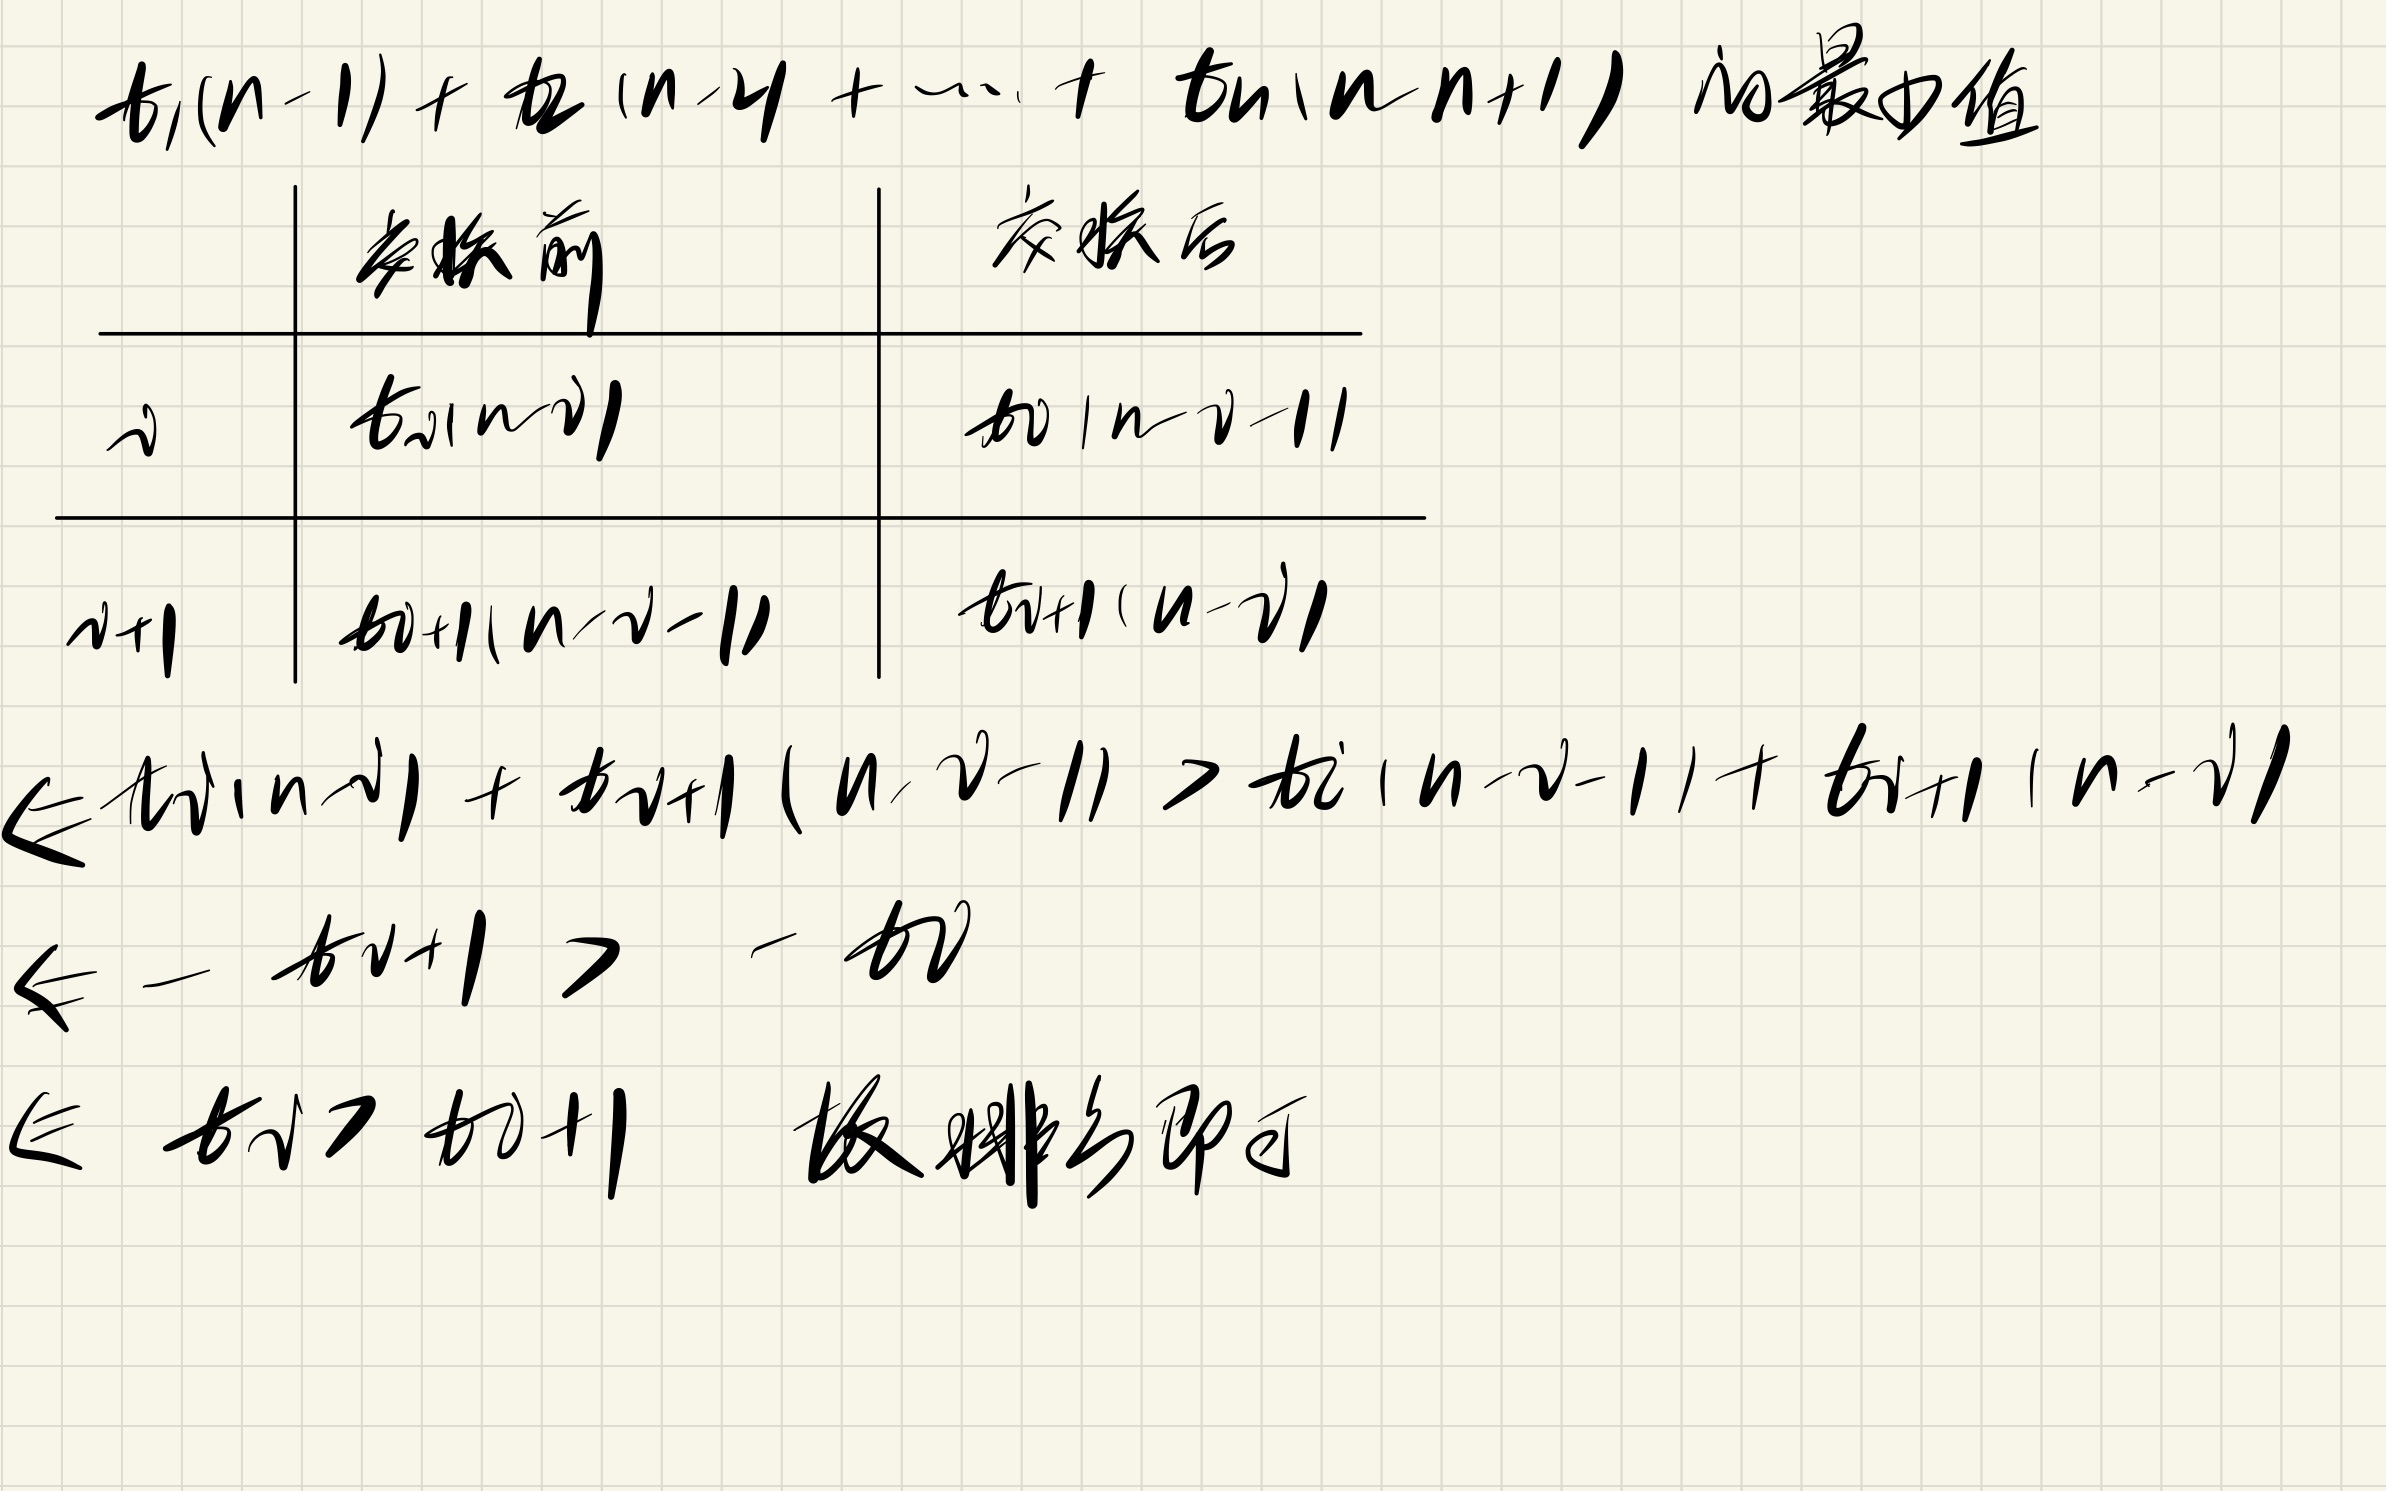 t₁(n-1) + t₂(n-2) + …… + tn(n-n+1) 的最小值
交换前 交换后
i ti(n-i) ti(n-i-1)
i+1 ti+1(n-i-1) ti+1(n-i)
⇐ ti(n-i) + ti+1(n-i-1) > ti(n-i-1) + ti+1(n-i)
⇐ - ti+1 > - ti
⇐ ti > ti+1 故排序即可